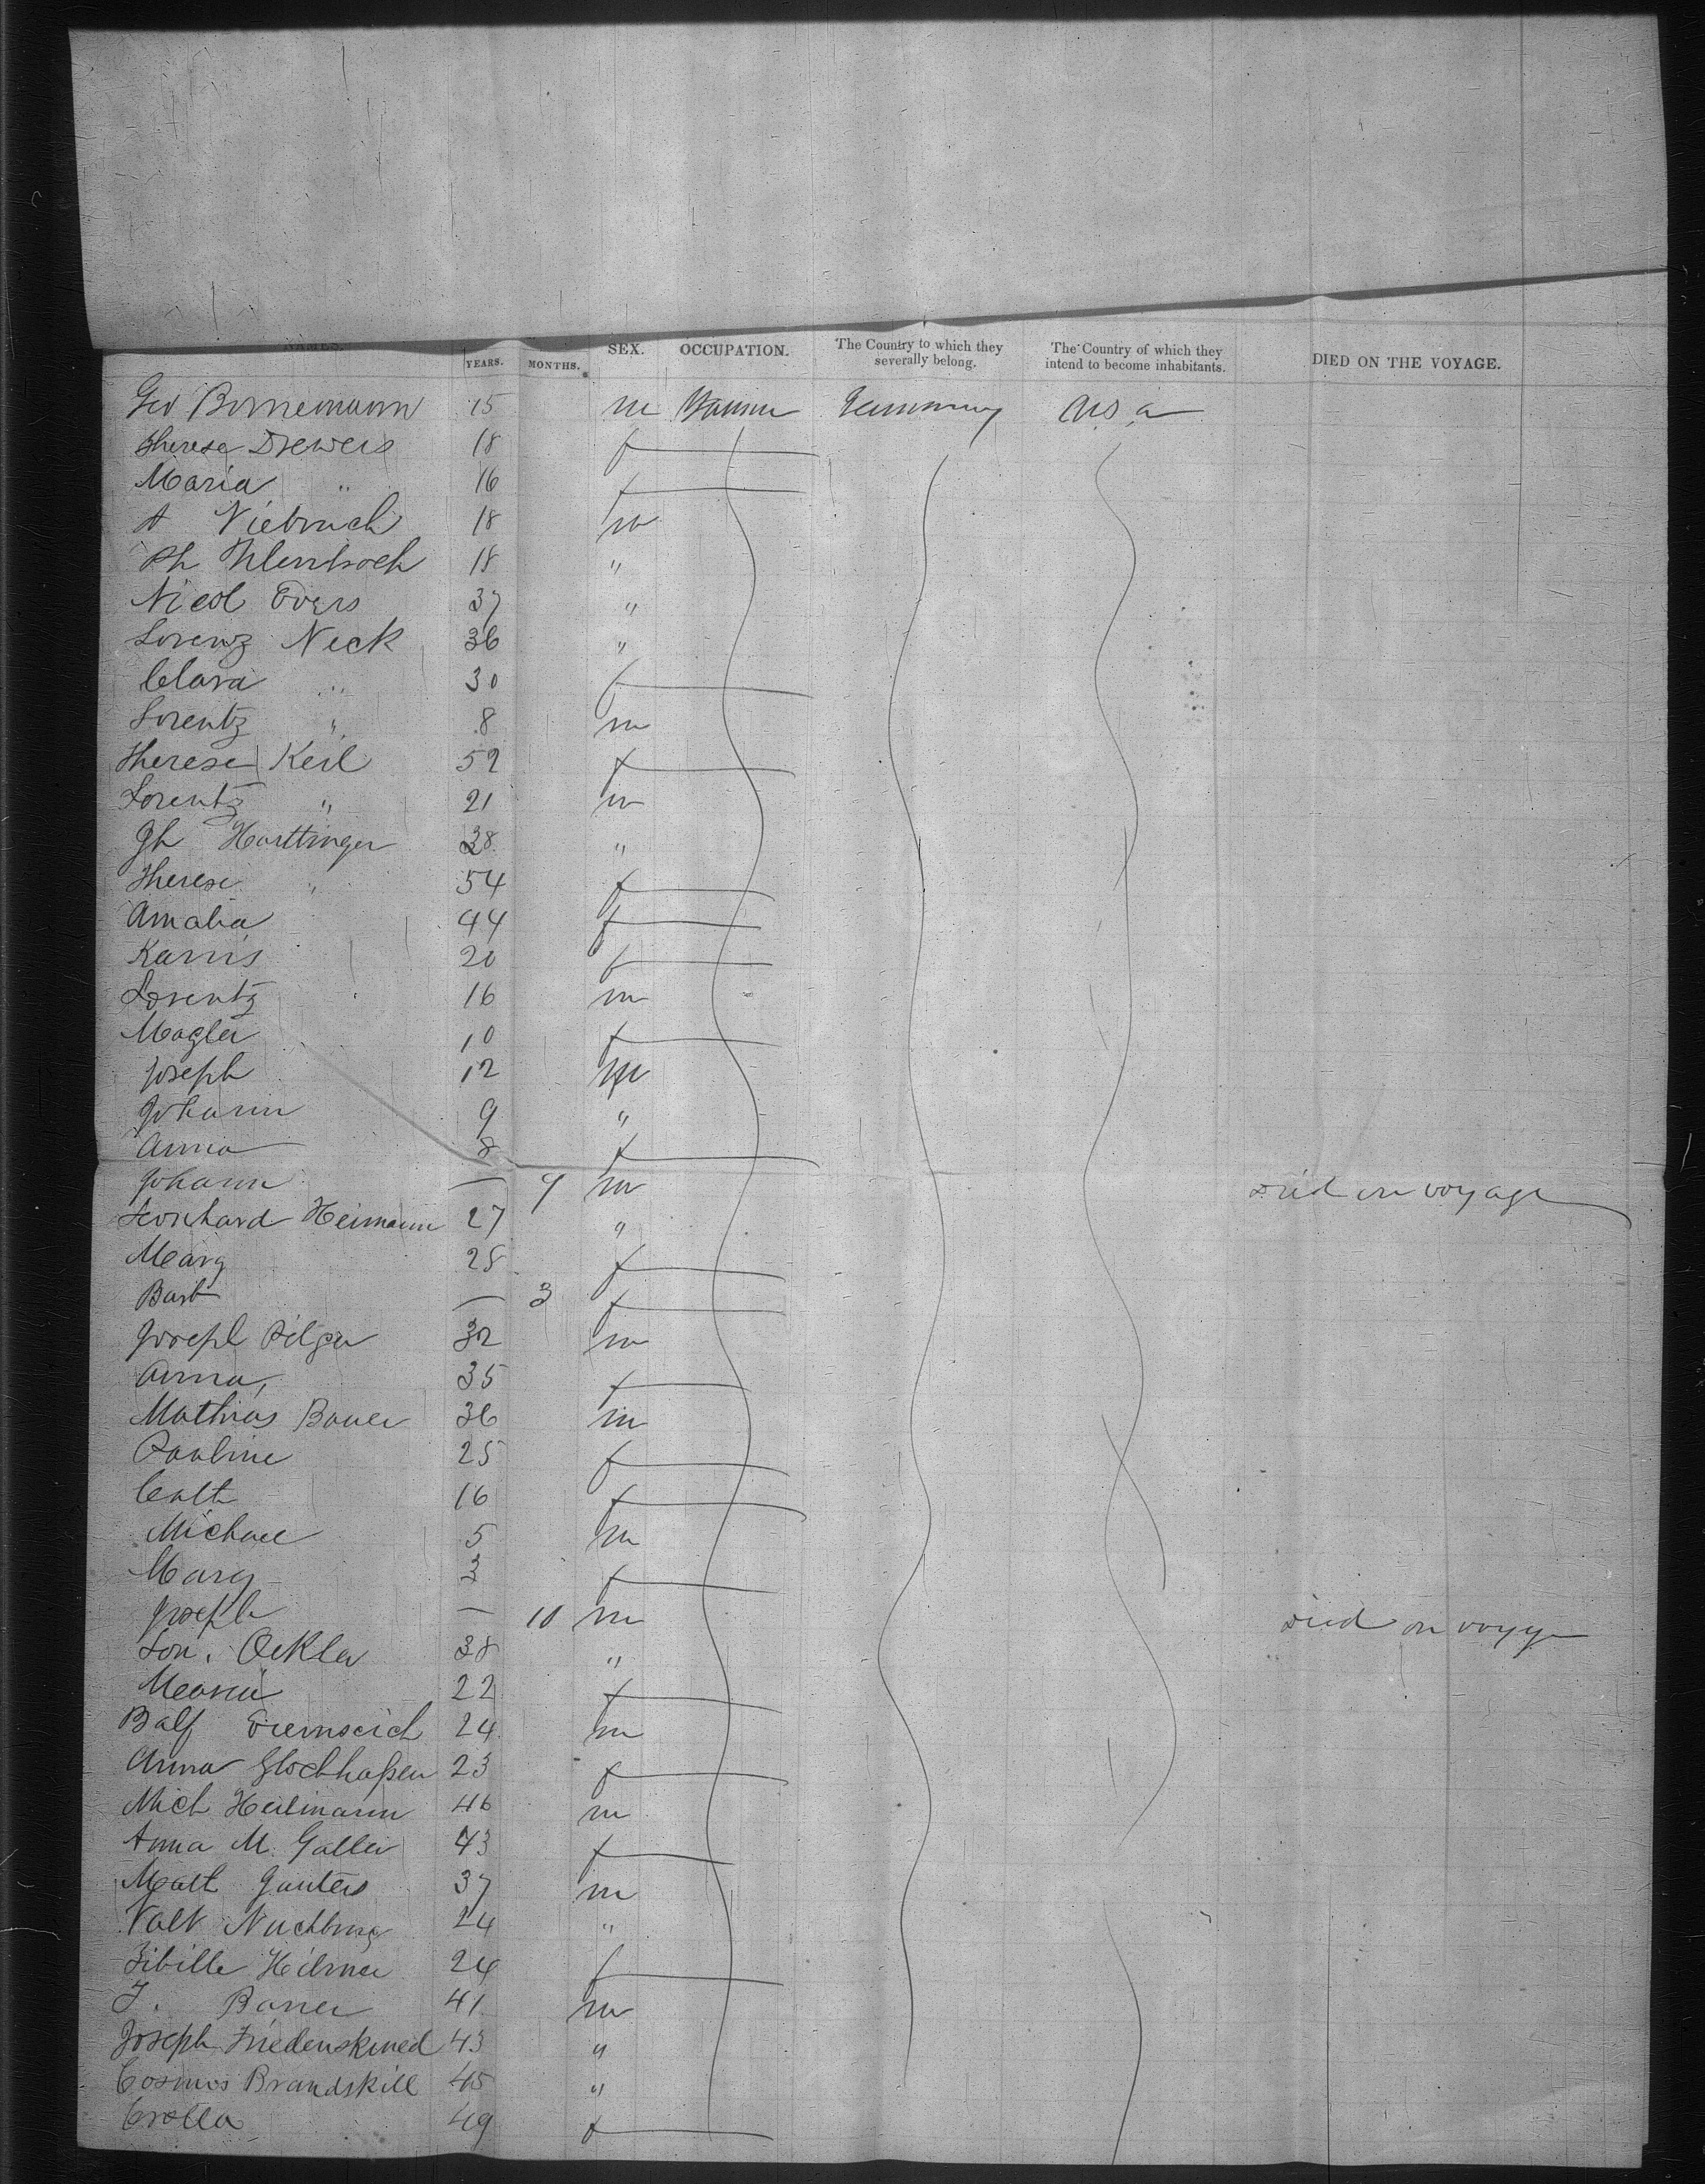 NAMES. YEARS. MONTHS. SEX. OCCUPATION. The Country to which they severally belong. The Country of which they intend to become inhabitants. DIED ON THE VOYAGE.
Geo Bornemann 15 m Germany U.S.a
Therese Drewers 18 f
Maria " 16 f
A Viebruch 18 m
Ph 18 "
Nicol Evers 37 "
Lorenz Neck 36 "
Clara " 30 f
Lorentz " 8 m
Therese Keil 52 f
Lorentz " 21 m
Harttinger 38 "
Therese " 54 f
Amalia 44 f
20 f
Lorentz 16 m
10 f
Joseph 12 m
Johann 9 "
Anna 8 f
Johann — m Died on voyage
Leonhard Heimann 27 "
Marg 28 f
Barb — 3 f
Joseph Pilger 32 m
Anna, 35 f
Mathias Bauer 36 m
Pauline 25 f
Cath 16 f
Michael 5 m
Marg 3 f
Joseph — 10 m Died on voyage
38 "
Maria 22 f
Balf 24 m
Anna 23 f
Mich Heilmann 46 m
Anna M. Galler 43 f
Math Gauters 37 m
Valt 24 "
Sibille 24 f
J. 41 m
Joseph Friedenskned 43 "
Cosmos Brandskill 45 "
49 f